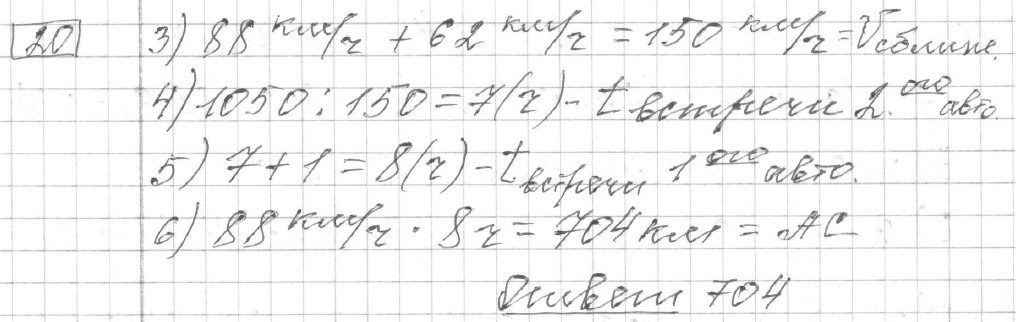 20 3) 88 км/ч + 62 км/ч = 150 км/ч = Vсближ.
4) 1050 : 150 = 7(ч) - t встречи 2.ого авто.
5) 7 + 1 = 8(ч) - t встречи 1ого авто.
6) 88 км/ч · 8ч = 704 км = AC
Ответ 704